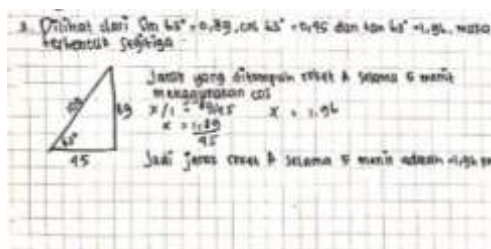 3. Dilihat dari Sin 63° = 0,89, cos 63° = 0,45 dan tan 63° = 1,96, maka
terbentuk segitiga
Jarak yang ditempuh roket A selama 5 menit
menggunakan cos
100
89
x/1 = 89/45 x = 1.96
x = 1.89
45
63°
45
Jadi jarak roket A selama 5 menit adalah 1,96